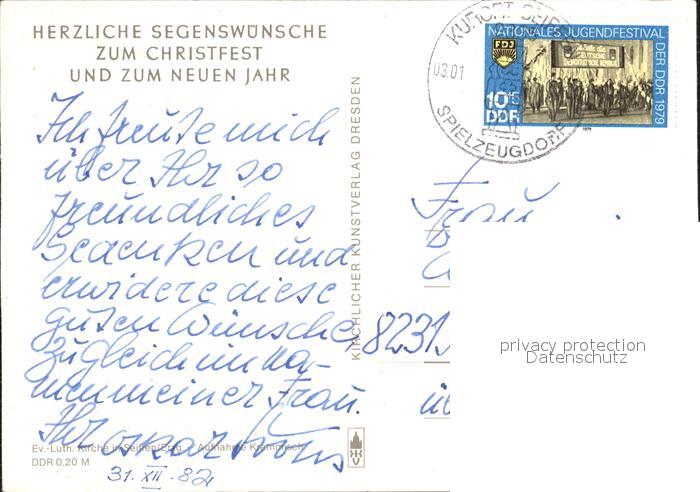 HERZLICHE SEGENSWÜNSCHE
ZUM CHRISTFEST
UND ZUM NEUEN JAHR
Ich freute mich
über Ihr so
freundliches
Gedenken und
erwidere diese
guten Wünsche,
zugleich im Na-
men meiner Frau.
Ihr Oskar
31. XII. 82
Ev.-Luth. Kirche in Seiffen/Erzg. Aufnahme
DDR 0,20 M
KIRCHLICHER KUNSTVERLAG DRESDEN
KURORT SEIFFEN
03.01
SPIELZEUGDORF
NATIONALES JUGENDFESTIVAL
DER DDR 1979
FDJ
10+5
DDR
1979
Frau
8231
üb
privacy protection
Datenschutz